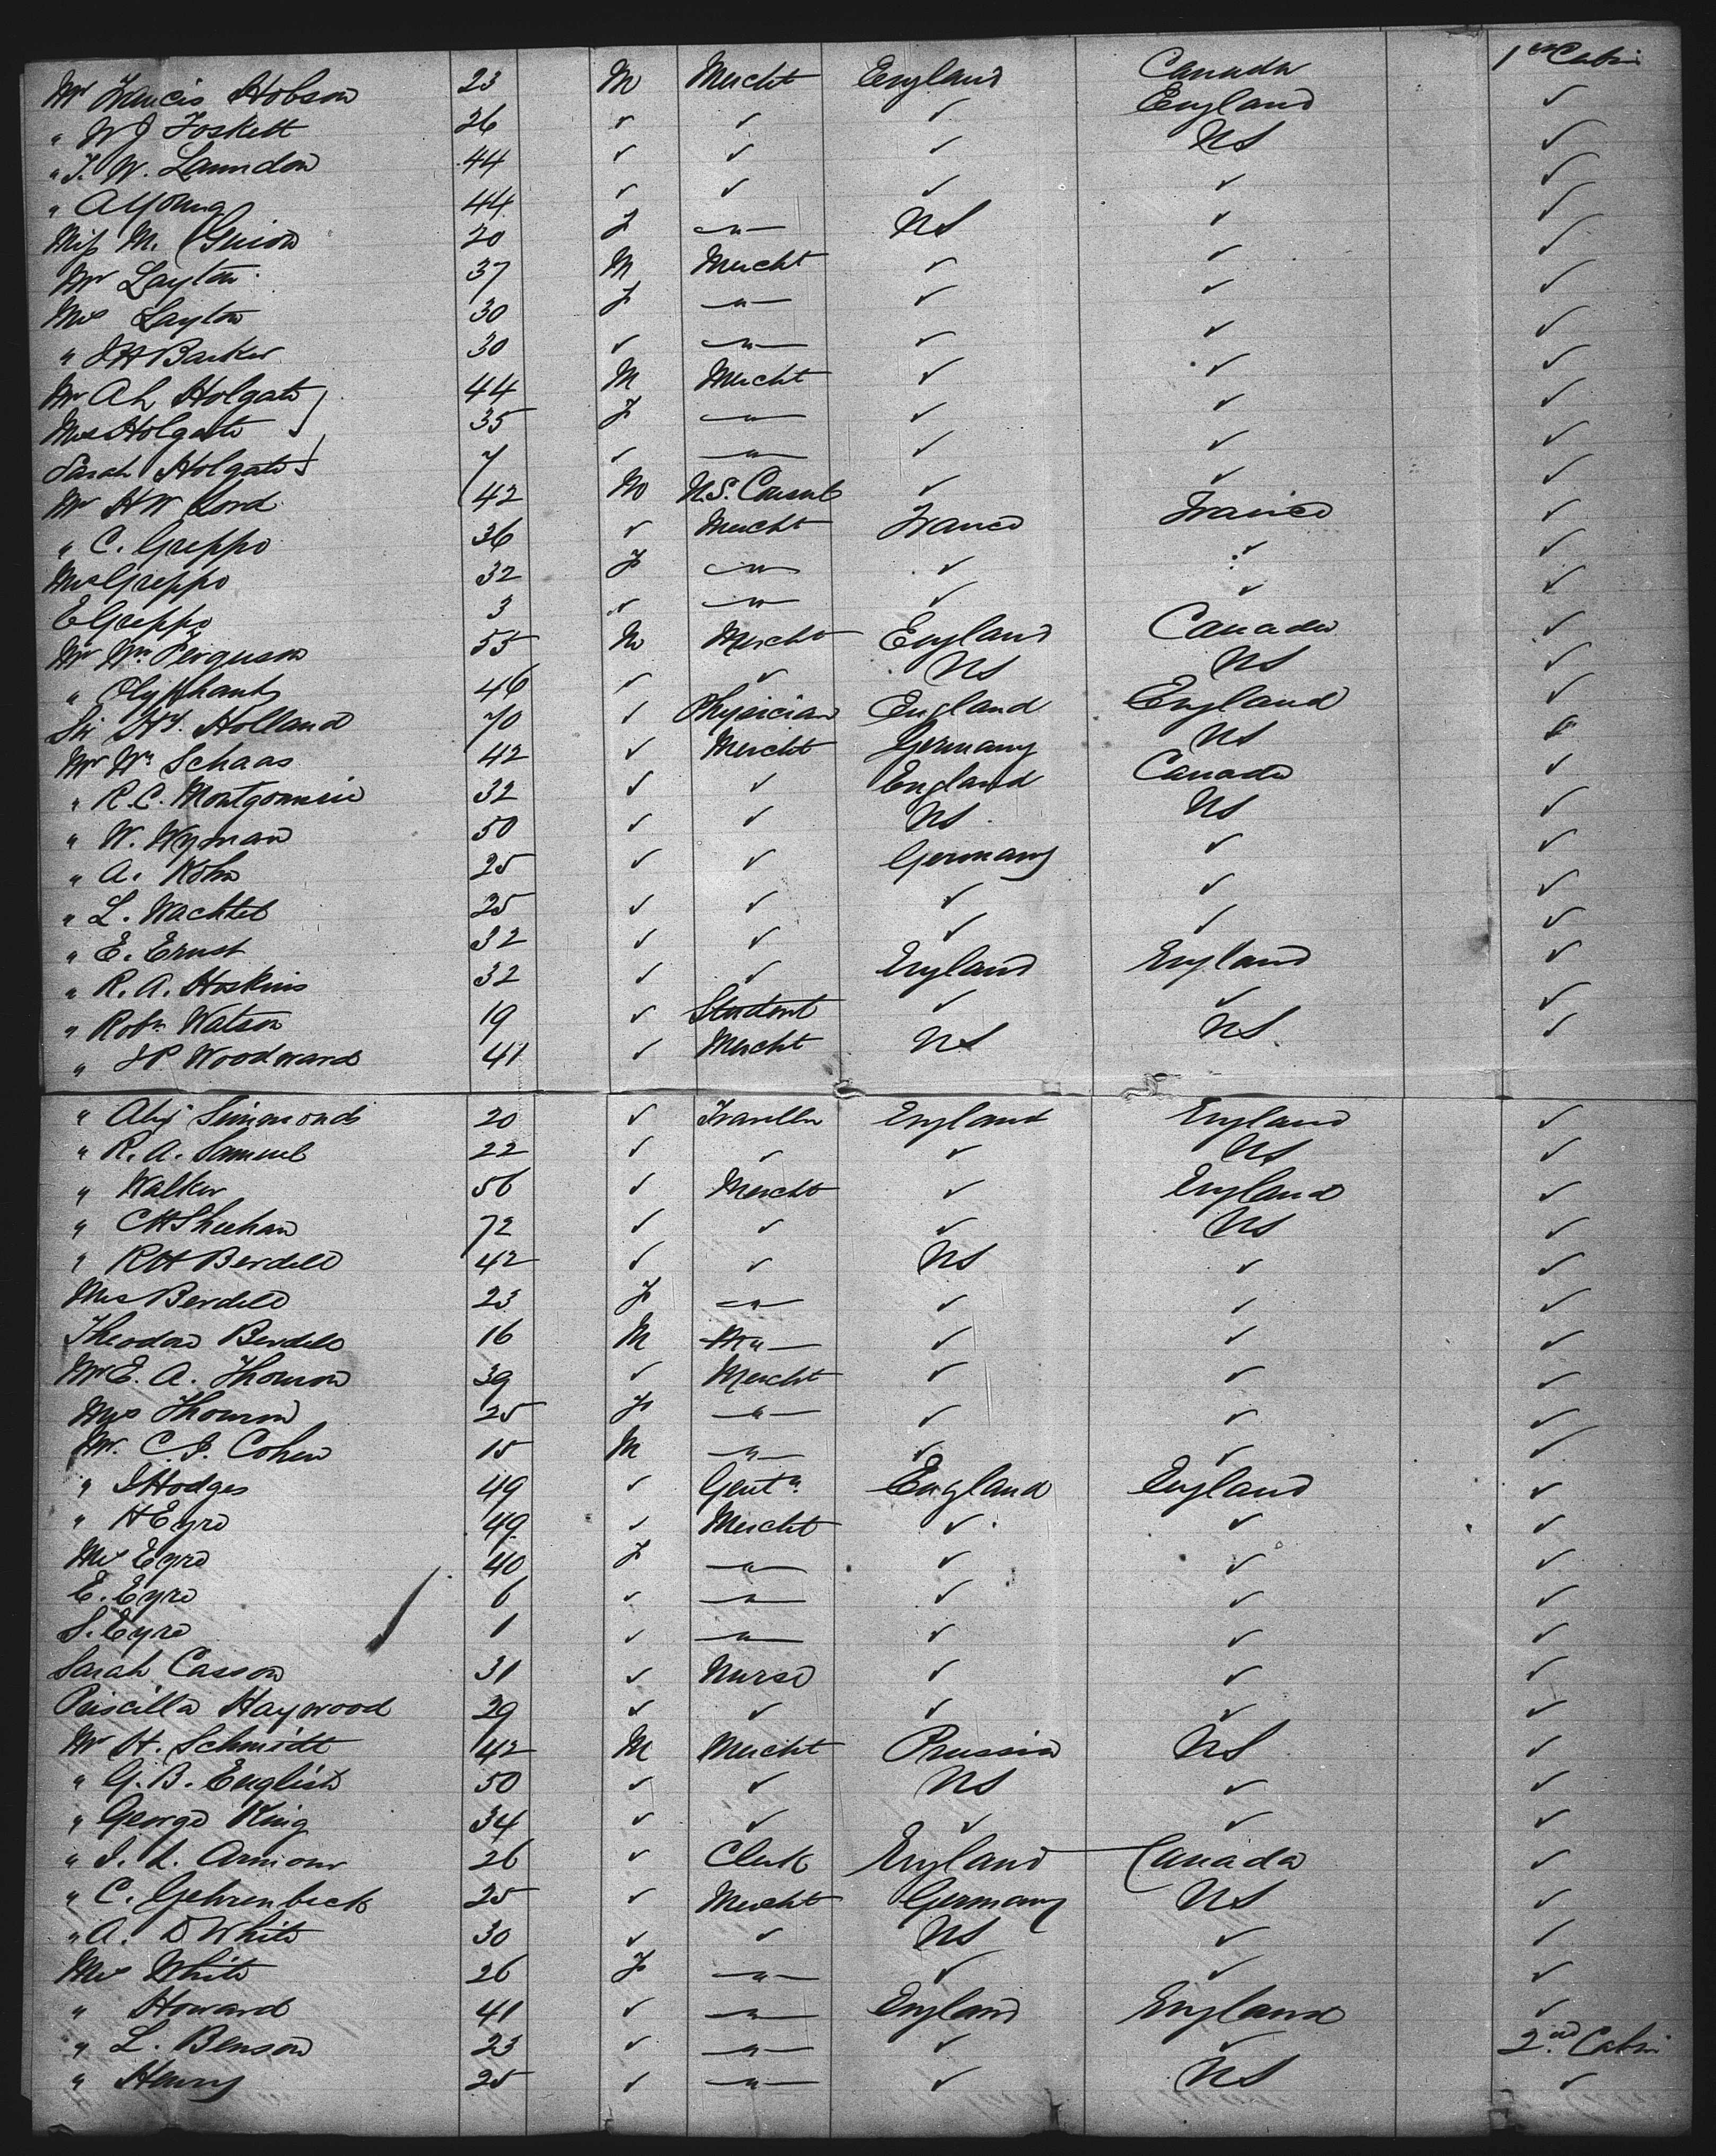 Mr Francis Hobson 23 M Mercht England Canada 1st Cabin
" W J Foskett 26 ✓ ✓ ✓ England ✓
" J. W. Laundon 44 ✓ ✓ ✓ US ✓
" A Young 44 ✓ ✓ ✓ ✓ ✓
Miss M. Guion 20 F —"— US ✓ ✓
Mr Layton 37 M Mercht ✓ ✓ ✓
Mrs Layton 30 F —"— ✓ ✓ ✓
" J H Barker 30 ✓ —"— ✓ ✓ ✓
Mr A L Holgate 44 M Mercht ✓ ✓ ✓
Mrs Holgate 35 F —"— ✓ ✓ ✓
Sarah Holgate 7 ✓ —"— ✓ ✓ ✓
Mr H W Lord 42 M U.S. Consul ✓ ✓ ✓
" C. Greppo 36 ✓ Mercht France France ✓
Mrs Greppo 32 F —"— ✓ ✓ ✓
E Greppo 3 ✓ —"— ✓ ✓ ✓
Mr Wm Ferguson 55 M Mercht England Canada ✓
" Olyphant 46 ✓ ✓ US US ✓
Sir Hy. Holland 70 ✓ Physician England England ✓
Mr Wm Schaas 42 ✓ Mercht Germany US ✓
" R. C. Montgomerie 32 ✓ ✓ England Canada ✓
" W. Wyman 50 ✓ ✓ US US ✓
" A. Kohn 25 ✓ ✓ Germany ✓ ✓
" L. Wachtel 25 ✓ ✓ ✓ ✓ ✓
" E. Ernst 32 ✓ ✓ ✓ ✓ ✓
" R. A. Hoskins 32 ✓ ✓ England England ✓
" Robt Watson 19 ✓ Student ✓ ✓ ✓
" J P Woodward 41 ✓ Mercht US US ✓
" Alex Simmonds 20 ✓ Traveller England England ✓
" R. A. Samuel 22 ✓ ✓ ✓ US ✓
" Walker 56 ✓ Mercht ✓ England ✓
" C H Sheehan 72 ✓ ✓ ✓ US ✓
" R H Berdell 42 ✓ ✓ US ✓ ✓
Mrs Berdell 23 F —"— ✓ ✓ ✓
Theodore Berdell 16 M —"— ✓ ✓ ✓
Mr E. A. Thomson 39 ✓ Mercht ✓ ✓ ✓
Mrs Thomson 25 F —"— ✓ ✓ ✓
Mr. C. J. Cohen 15 M —"— ✓ ✓ ✓
" J Hodges 49 ✓ Gentn. England England ✓
" H Eyre 49 ✓ Mercht ✓ ✓ ✓
Mrs Eyre 40 F —"— ✓ ✓ ✓
E. Eyre 6 ✓ —"— ✓ ✓ ✓
S. Eyre 1 ✓ —"— ✓ ✓ ✓
Sarah Casson 31 ✓ Nurse ✓ ✓ ✓
Priscilla Haywood 29 ✓ ✓ ✓ ✓ ✓
Mr H. Schmidt 42 M Mercht Prussia US ✓
" G. B. English 50 ✓ ✓ US ✓ ✓
" George King 34 ✓ ✓ ✓ ✓ ✓
" J. L. Armour 26 ✓ Clerk England Canada ✓
" C. Gehrenbeck 25 ✓ Mercht Germany US ✓
" A. D White 30 ✓ ✓ US ✓ ✓
Mrs White 26 F —"— ✓ ✓ ✓
" Howard 41 ✓ —"— England England ✓
" L. Benson 23 ✓ —"— ✓ ✓ 2nd. Cabin
" Henry 25 ✓ —"— ✓ US ✓